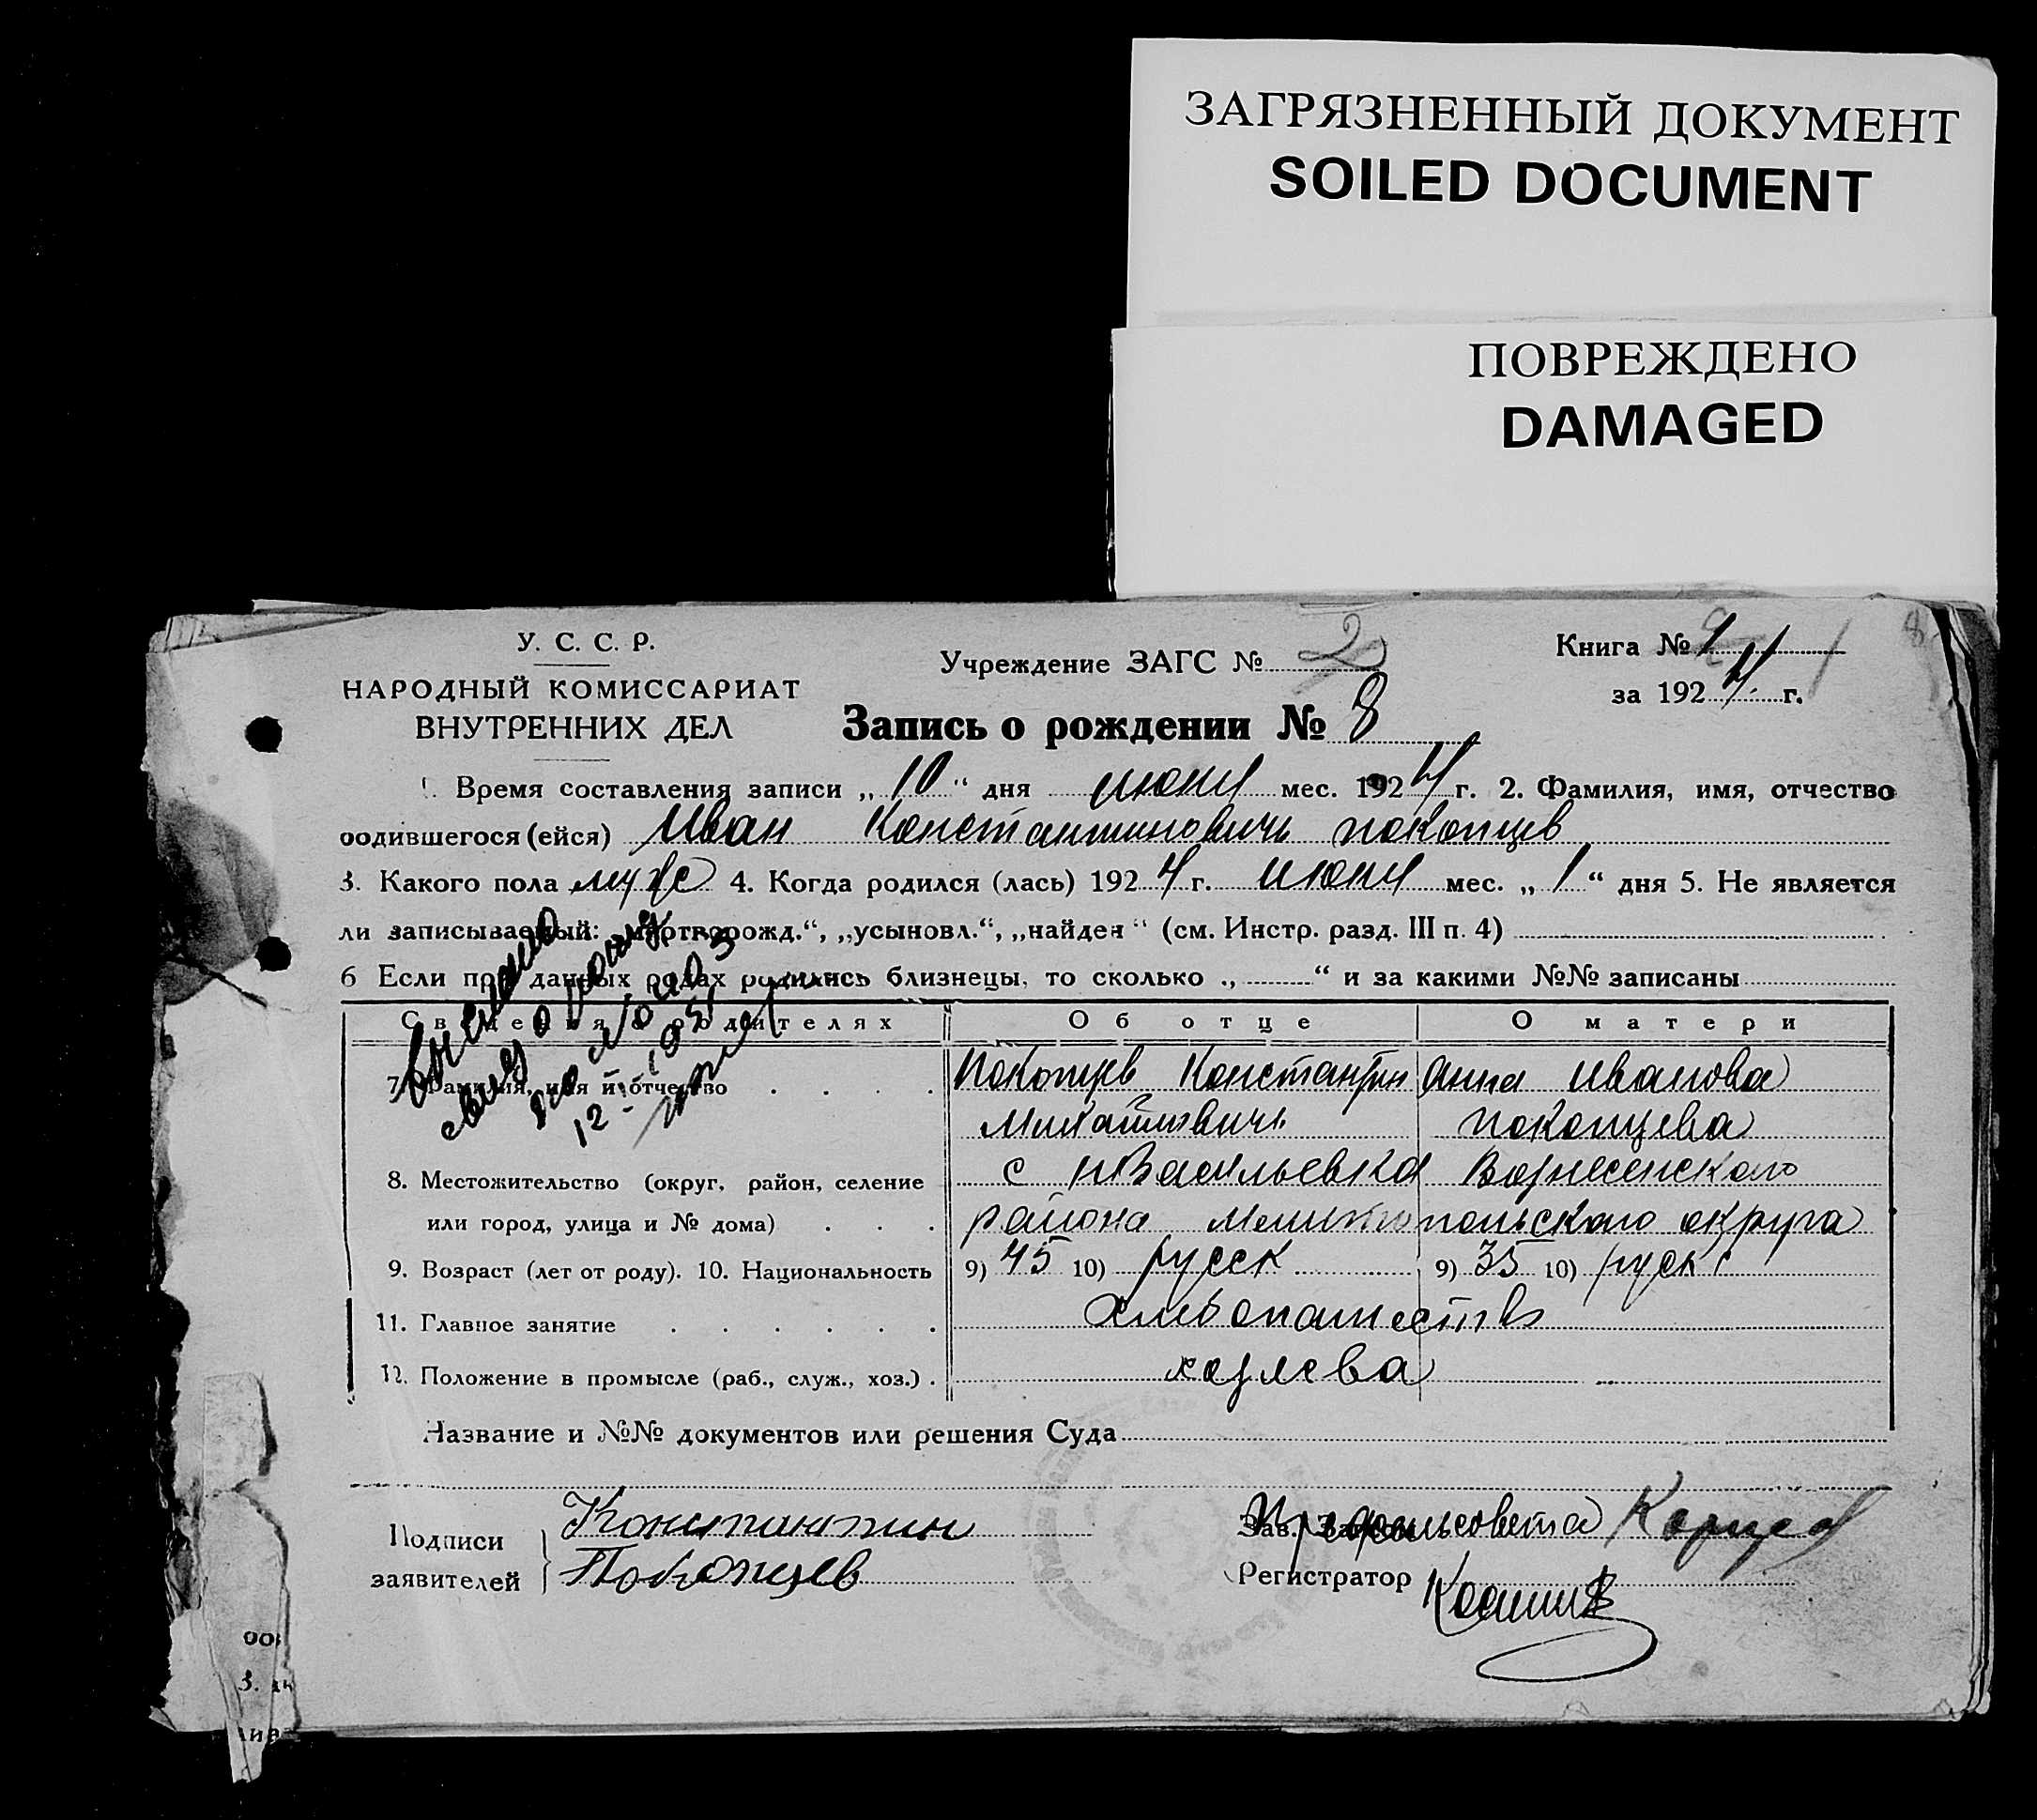 ЗАГРЯЗНЕННЫЙ ДОКУМЕНТ
SOILED DOCUMENT
ПОВРЕЖДЕНО
DAMAGED
У. С. С. Р.
НАРОДНЫЙ КОМИССАРИАТ
ВНУТРЕННИХ ДЕЛ
Учреждение ЗАГС № 2
Книга № 1
за 1924 г.
8
Запись о рождении № 8
1. Время составления записи „10“ дня июня мес. 1924 г. 2. Фамилия, имя, отчество
родившегося (ейся) Иван Константиновичь покопцев
3. Какого пола муже 4. Когда родился (лась) 1924 г. июня мес. „1“ дня 5. Не является
ли записываемый: „мертворожд.“, „усыновл.“, „найден“ (см. Инстр. разд. III п. 4)
6 Если при данных родах родились близнецы, то сколько „ “ и за какими №№ записаны
Сведения о родителях Об отце О матери
7. Фамилия, имя и отчество Покопцев Константин Анна Иванова
Михайловичь покопцева
8. Местожительство (округ, район, селение с нВасильевка Вознесенского
или город, улица и № дома) района Мелитопольского округа
9. Возраст (лет от роду). 10. Национальность 9) 45 10) русск 9) 35 10) руск
11. Главное занятие Хлебопашеств
12. Положение в промысле (раб., служ., хоз.) хозяева
Название и №№ документов или решения Суда
Подписи заявителей Константин
Покопцев
Зав. Загсом
Регистратор